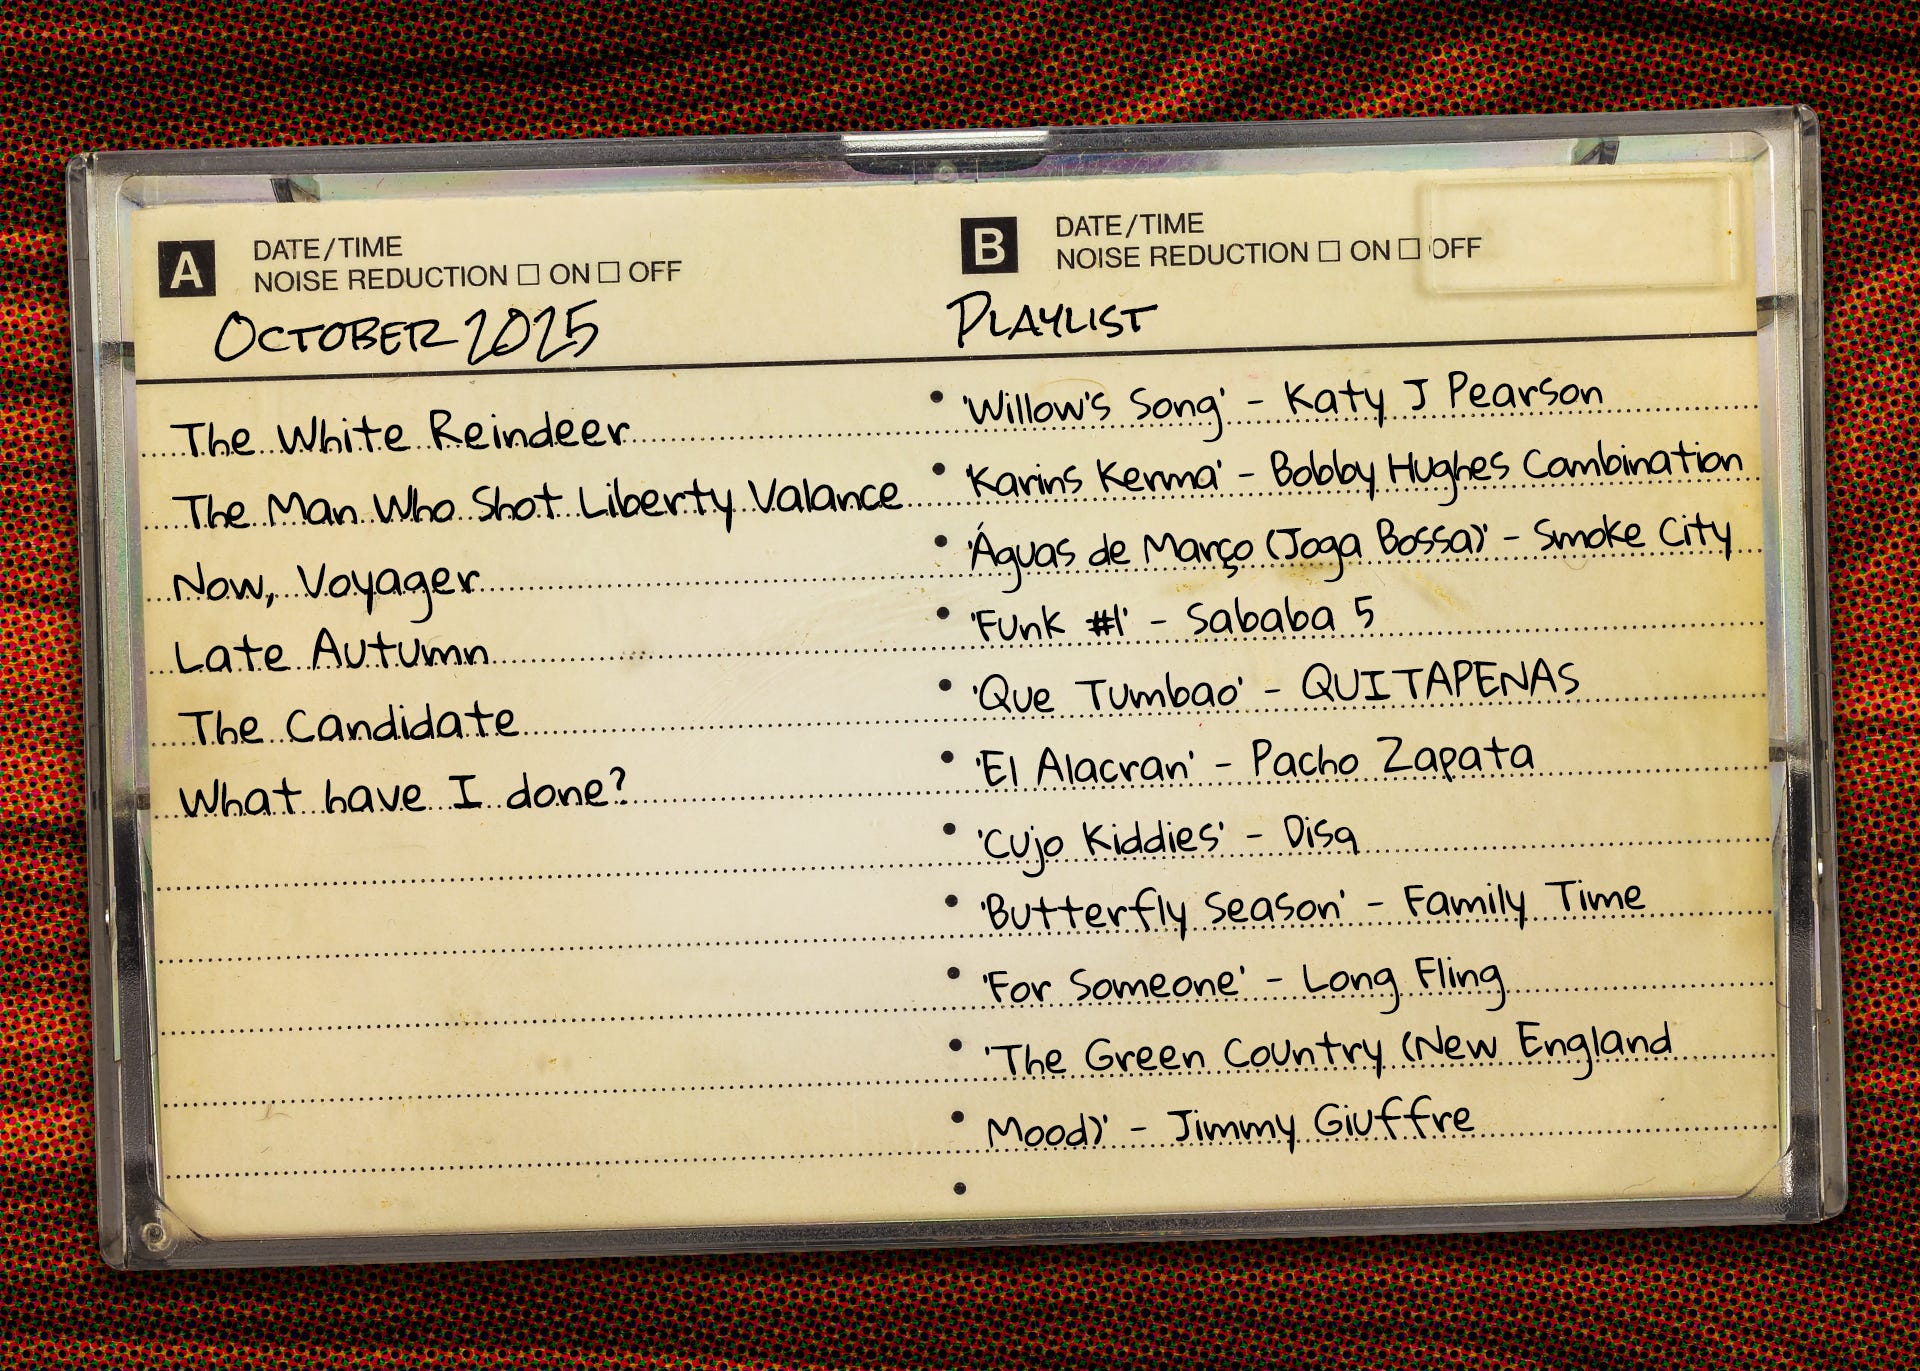 A
DATE/TIME
NOISE REDUCTION □ ON □ OFF
OCTOBER 2025
The White Reindeer
The Man Who Shot Liberty Valance
Now, Voyager
Late Autumn
The Candidate
What have I done?
B
DATE/TIME
NOISE REDUCTION □ ON □ OFF
PLAYLIST
• 'Willow's Song' - Katy J Pearson
• 'Karins Kerma' - Bobby Hughes Combination
• 'Águas de Março (Joga Bossa)' - Smoke City
• 'Funk #1' - Sababa 5
• 'Que Tumbao' - QUITAPENAS
• 'El Alacran' - Pacho Zapata
• 'Cujo Kiddies' - Disq
• 'Butterfly Season' - Family Time
• 'For Someone' - Long Fling
• 'The Green Country (New England
• Mood)' - Jimmy Giuffre
•